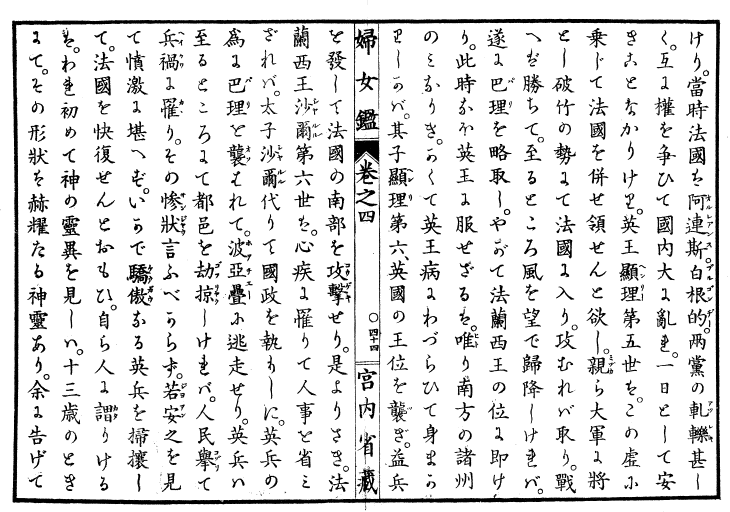 けり。當時法國は阿連斯白根的両黨の軋轢甚し
く。互に權を争ひて國内大に亂れ。一日として安
きことなかりけれ。英王顯理第五世は。この虚に
乗じて法國を併せ領せんと欲し。親ら大軍に將
とし破竹の勢にて法國に入り。攻むれバ取り。戰
へば勝ちて。至るところ風を望で歸降しけれバ。
遂に巴理を略取し。やがて法蘭西王の位に即け
り。此時なほ英王に服せざるは。唯り南方の諸州
のみなりき。かくて英王病にわづらひて身まか
りしかバ。其子顯理第六、英國の王位を襲ぎ。益兵
婦女鑑 巻之四 ○四十四 宮内省藏
を發して法國の南部を攻撃せり。是よりさき。法
蘭西王沙爾第六世は。心疾に罹りて人事を省ミ
ざれバ。太子沙爾代りて國政を執りしに。英兵の
為に巴理を襲はれて。波亞疊に逃走せり。英兵ハ
至るところにて都邑を劫掠しけれバ。人民擧て
兵禍に罹り。その惨状言ふべからず。若安之を見
て憤激に堪へず。いかで驕傲なる英兵を掃攘し
て。法國を快復せんとおもひ。自ら人に謂りける
は。われ初めて神の靈異を見しハ。十三歳のとき
にて。その形狀は赫耀たる神靈あり。余に告げて